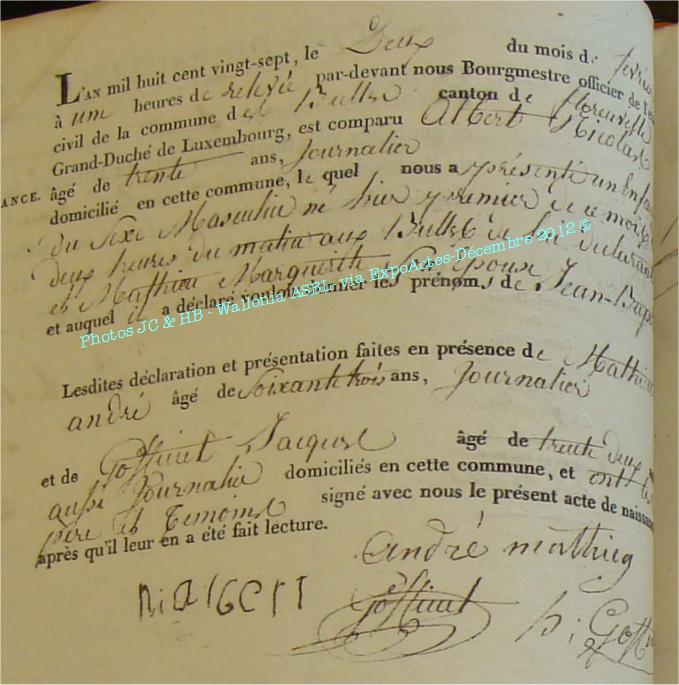 L'AN mil huit cent vingt-sept, le Deux du mois de fevrie
à une heures de relevée par-devant nous Bourgmestre officier de l'é
civil de la commune des Bulles canton de florenville
Grand-Duché de Luxembourg, est comparu Albert Nicolas
ANCE. âgé de trente ans, Journalier
domicilié en cette commune, le quel nous a présenté un Enfa
du Sexe Masculin né hier premier de ce mois
deux heures du matin aux Bulles de lui declarant
et Mathieu Marguerite Son Epouse
et auquel il a déclaré vouloir donner les prénoms de Jean-Bap
Photos JC & HB - Wallonia ASBL via ExpoActes-Décembre 2012 ©
Lesdites déclaration et présentation faites en présence de Mathieu
andré âgé de Soixante trois ans, Journalier
et de Goffinet Jacques âgé de trente deux
aussi Journalie domiciliés en cette commune, et ont les
père et Temoins signé avec nous le présent acte de naissan
après qu'il leur en a été fait lecture.
andré mathieu
N: alBert Goffinet